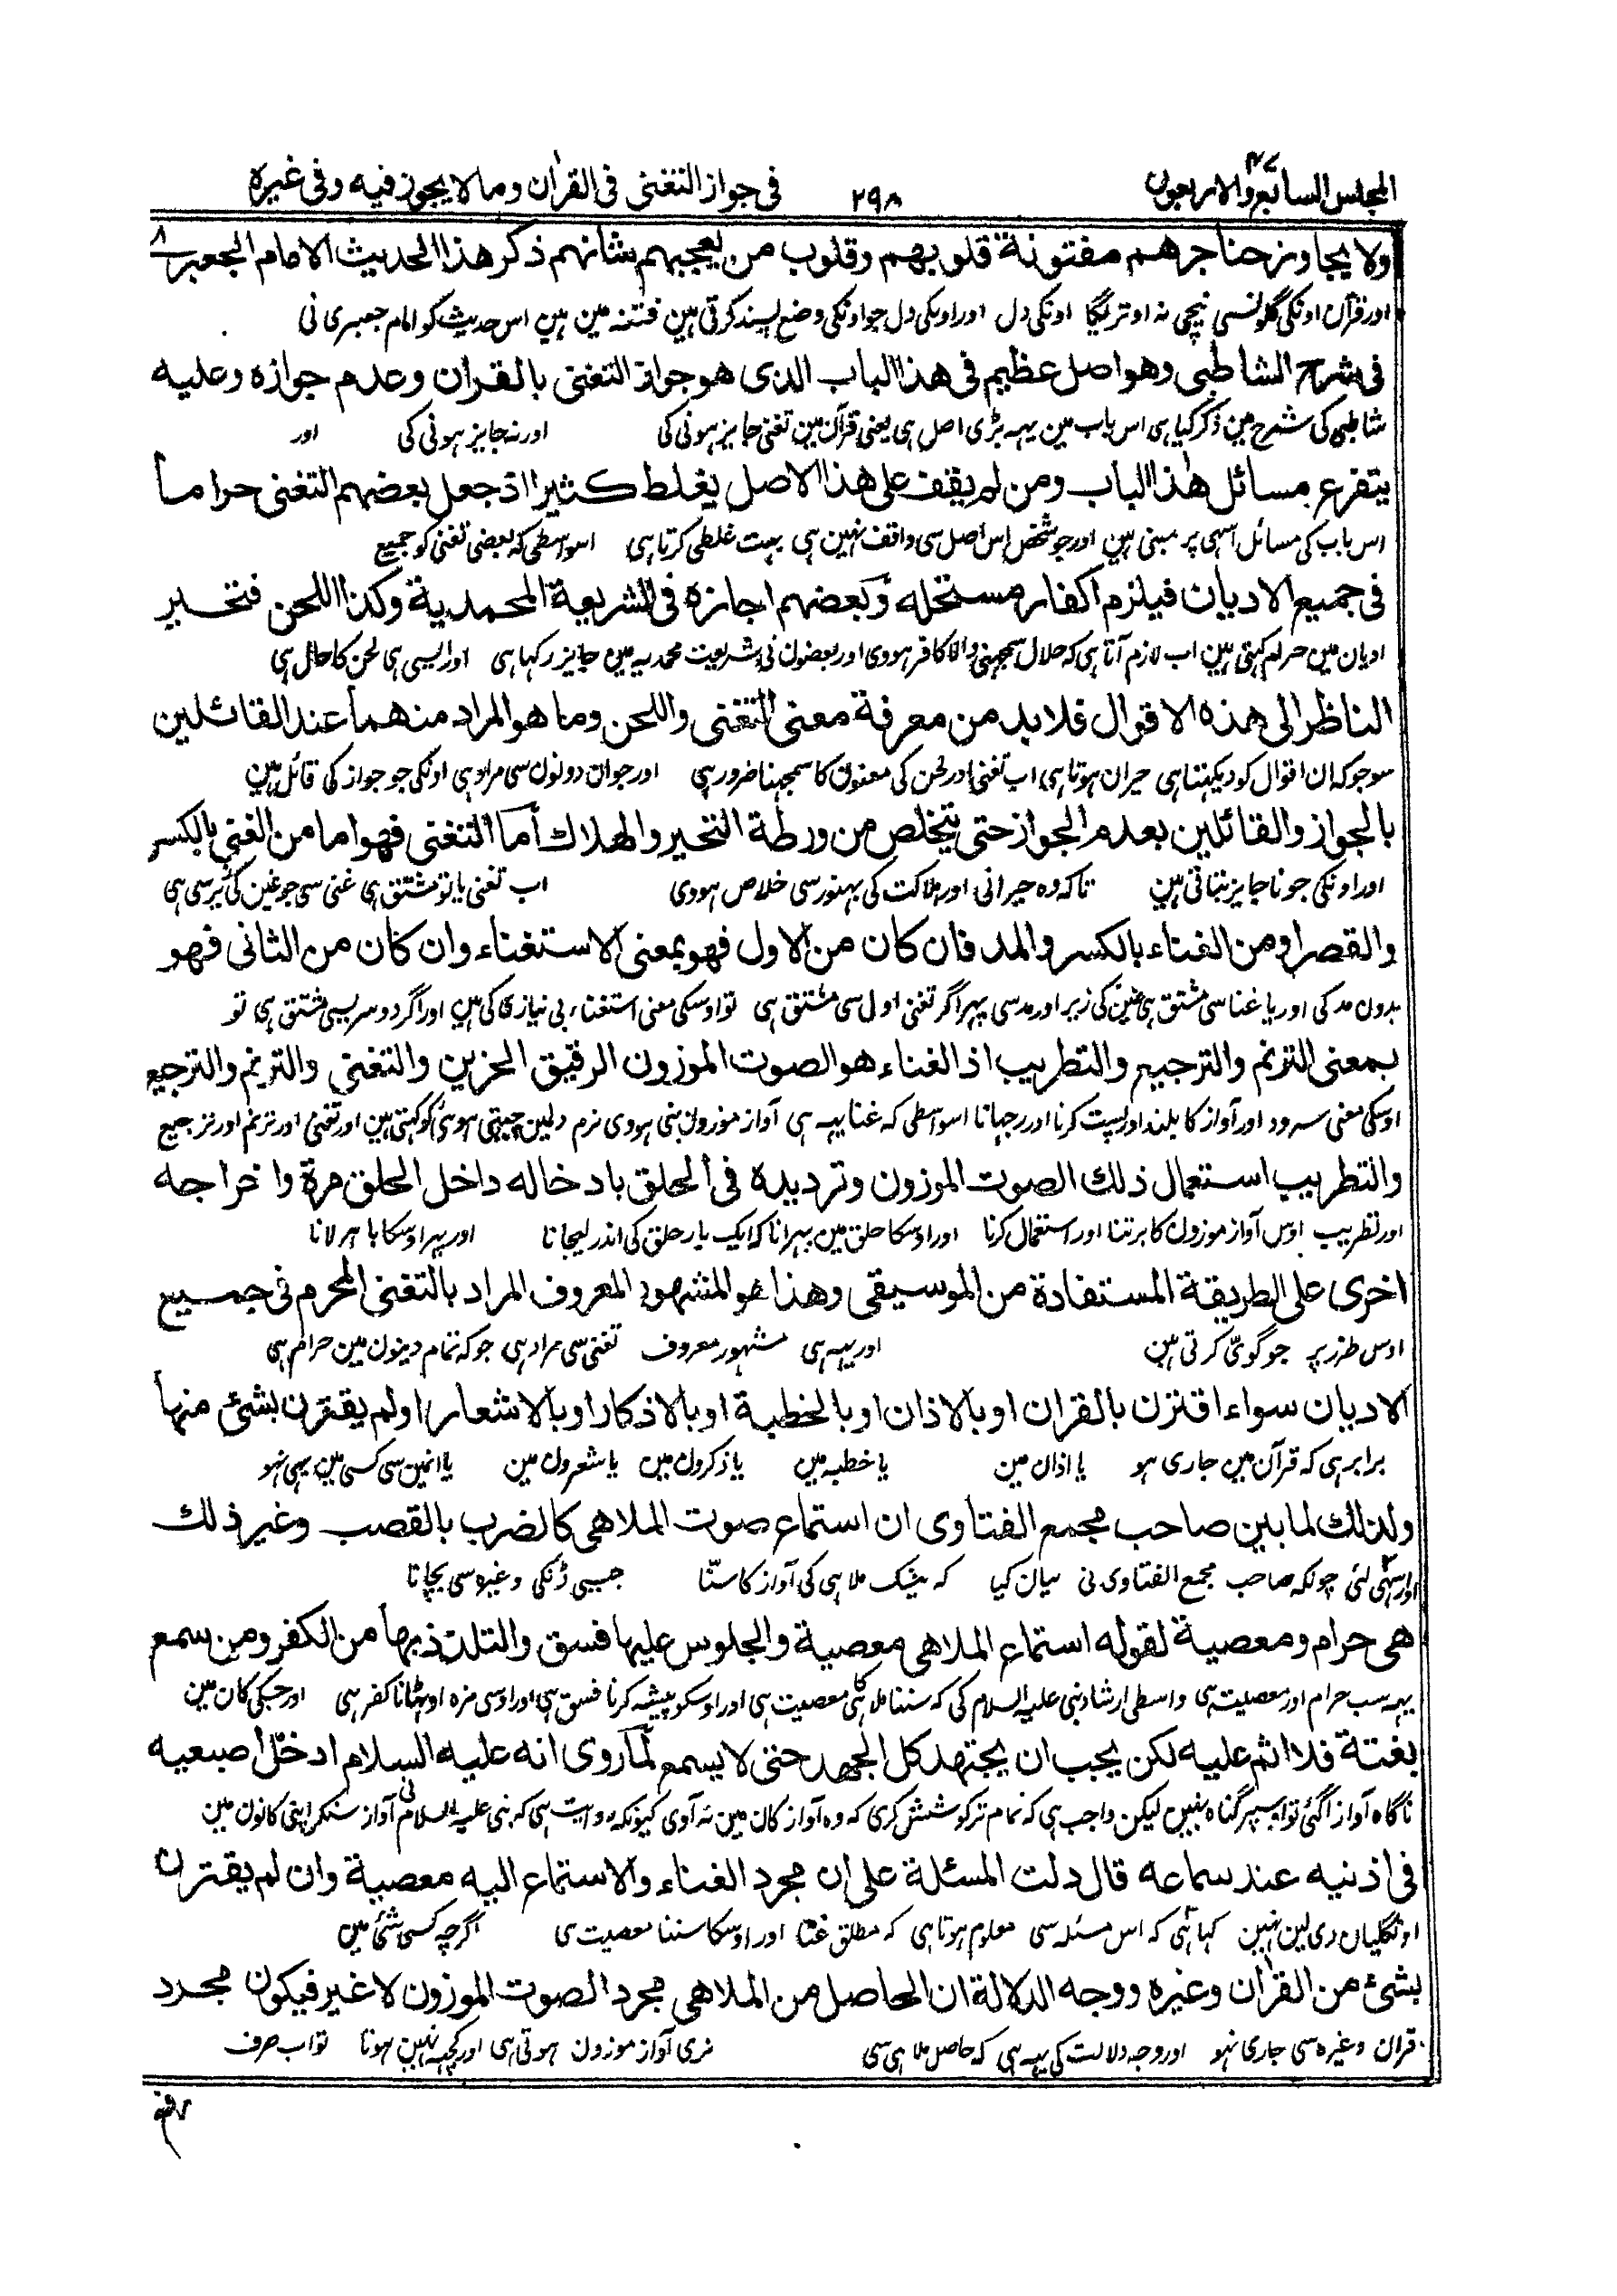 المجلس السابع والاربعون ٤٧ ٢٩٨ فى جواز التغنى فى القرآن وما لا يجوز فيه وفى غيره
ولا يجاوز حناجرهم مفتونة قلوبهم وقلوب من يعجبهم شانهم ذكر هذا الحديث الامام الجعبرى
اور قرآن اونكى گلونسى نيچى نه اوتريگا اونكى دل اور اونكى دل جو اونكى وضع پسند كرتى ہين فتنه مين ہين اس حديث كو امام جعبرى نى
فى شرح الشاطبى وهو اصل عظيم فى هذا الباب الذى هو جواز التغنى بالقران وعدم جوازه وعليه
شاطبى كى شرح مين ذكر كيا ہى اس باب مين يہہ بڑى اصل ہى يعنى قرآن مين تغنى جايز ہونى كى اور نہ جايز ہونى كى اور
يتفرع مسائل هذا الباب ومن لم يقف على هذا الاصل يغلط كثيرا اذ جعل بعضهم التغنى حراما
اس باب كى مسائل اسہى پر مبنى ہين اور جو شخص اس اصل سى واقف نہين ہى بہت غلطى كرتا ہى اسواسطى كہ بعضى تغنى كو جميع
فى جميع الاديان فيلزم اكفار مستحله وبعضهم اجازه فى الشريعة المحمدية وكذا اللحن فتحير
اديان مين حرام كہتى ہين اب لازم آتا ہى كہ حلال سمجہنى والا كافر ہووى اور بعضون نى شريعت محمديہ مين جايز ركہا ہى اور ايسى ہى لحن كا حال ہى
الناظر الى هذه الاقوال فلابد من معرفة معنى التغنى واللحن وما هو المراد منهما عند القائلين
سو جو كہ ان اقوال كو ديكہتا ہى حيران ہوتا ہى اب تغنى اور لحن كى معنون كا سمجہنا ضرور ہى اور جو ان دونون سى مراد ہى اونكى جو جواز كى قائل ہين
بالجواز والقائلين بعدم الجواز حتى يتخلص من ورطة التحير والهلاك أما التغنى فهو اما من الغنى بالكسر
اور اونكى جو ناجايز بتاتى ہين تاكہ وہ حيرانى اور ہلاكت كى بہنور سى خلاص ہووى اب تغنى يا تو مشتق ہى غنى سى جو غين كى زير سى ہى
والقصر او من الغناء بالكسر والمد فان كان من الاول فهو بمعنى الاستغناء وان كان من الثانى فهو
بدون مد كى اور يا غنا سى مشتق ہى غين كى زير اور مد سى پہر اگر تغنى اول سى مشتق ہى تو اوسكى معنى استغناء بى نيازى كى ہين اور اگر دوسريسى مشتق ہى تو
بمعنى الترنم والترجيع والتطريب اذ الغناء هو الصوت الموزون الرقيق الحزين والتغنى والترنم والترجيع
اوسكى معنى سرود اور آواز كا بلند اور پست كرنا اور رجہانا اسواسطى كہ غنا يہہ ہى آواز موزون بنى ہووى نرم دلمين چبہتى ہوئى كو كہتى ہين اور تغنى اور ترنم اور ترجيع
والتطريب استعمال ذلك الصوت الموزون وترديده فى الحلق بادخاله داخل الحلق مرة واخراجه
اور تطريب اوس آواز موزون كا برتنا اور استعمال كرنا اور اوسكا حلق مين پہرانا كہ ايك بار حلق كى اندر ليجانا اور پہر اوسكا باہر لانا
اخرى على الطريقة المستفادة من الموسيقى وهذا هو المشهور المعروف المراد بالتغنى المحرم فى جميع
اوس طرز پر جو گوئى كرتى ہين اور يہہ ہى مشہور معروف تغنى سى مراد ہى جو كہ تمام دينون مين حرام ہى
الاديان سواء اقترن بالقران او بالاذان او بالخطبة او بالاذكار او بالاشعار او لم يقترن بشئ منها
برابر ہى كہ قرآن مين جارى ہو يا اذان مين يا خطبہ مين يا ذكرون مين يا شعرون مين يا انمين سى كسى مين بہى نہو
ولذلك لما بين صاحب مجمع الفتاوى ان استماع صوت الملاهى كالضرب بالقصب وغير ذلك
اور اسہى لئى چونكہ صاحب مجمع الفتاوى نى بيان كيا كہ بيشك ملاہى كى آواز كا سننا جيسى ڈنكى وغيرہ سى بجانا
هى حرام ومعصية لقوله استماع الملاهى معصية والجلوس عليها فسق والتلذذ بها من الكفر ومن سمع
يہہ سب حرام اور معصيت ہى واسطى ارشاد نبى عليہ السلام كى كہ سننا ملاہى كا معصيت ہى اور اوسكو پيشہ كرنا فسق ہى اور اوسى مزہ اوٹہانا كفر ہى اور جسكى كان مين
بغتة فلا اثم عليه لكن يجب ان يجتهد كل الجهد حتى لا يسمع لما روى انه عليه السلام ادخل اصبعيه
ناگاہ آواز آگئى تو اسپر گناہ نہين ليكن واجب ہى كہ تمام تر كوشش كرى كہ وہ آواز كان مين نہ آوى كيونكہ روايت ہى كہ نبى عليہ السلام نى آواز سنكر اپنى كانون مين
فى اذنيه عند سماعه قال دلت المسئلة على ان مجرد الغناء والاستماع اليه معصية وان لم يقترن
اونگليان دى لين تہين كہا ہى كہ اس مسئلہ سى معلوم ہوتا ہى كہ مطلق غنا اور اوسكا سننا معصيت ہى اگرچہ كسى شئى مين
بشئ من القرآن وغيره ووجه الدلالة ان الحاصل من الملاهى مجرد الصوت الموزون لا غير فيكون مجرد
قرآن وغيرہ سى جارى نہو اور وجہ دلالت كى يہہ ہى كہ حاصل ملاہى سى نرى آواز موزون ہوتى ہى اور كچہہ نہين ہوتا تو اب صرف